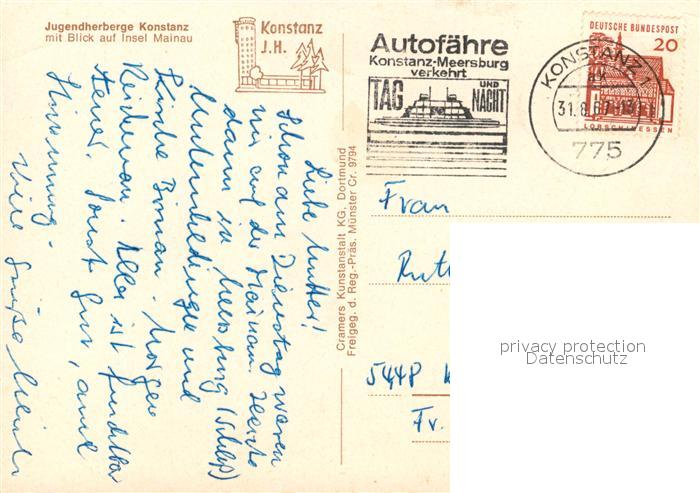 Jugendherberge Konstanz
mit Blick auf Insel Mainau
Konstanz
J.H.
Autofähre
Konstanz-Meersburg
verkehrt
TAG UND NACHT
DEUTSCHE BUNDESPOST
20
LORSCH/HESSEN
KONSTANZ 1
31.8.67
775
Liebe Mutter!
Schon am Dienstag waren
wir auf der Mainau. Heute
dann in Meersburg (Schloß)
Unteruhldingen und
Kirche Birnau. Morgen
Reichenau. Alles ist furchtbar
teuer. Sonst gute
Stimmung.
Viele Grüße
Cramers Kunstanstalt KG, Dortmund
Freigeg. d. Reg.-Präs. Münster Cr. 9794
Frau
Ruth
5448
Fr.
privacy protection
Datenschutz